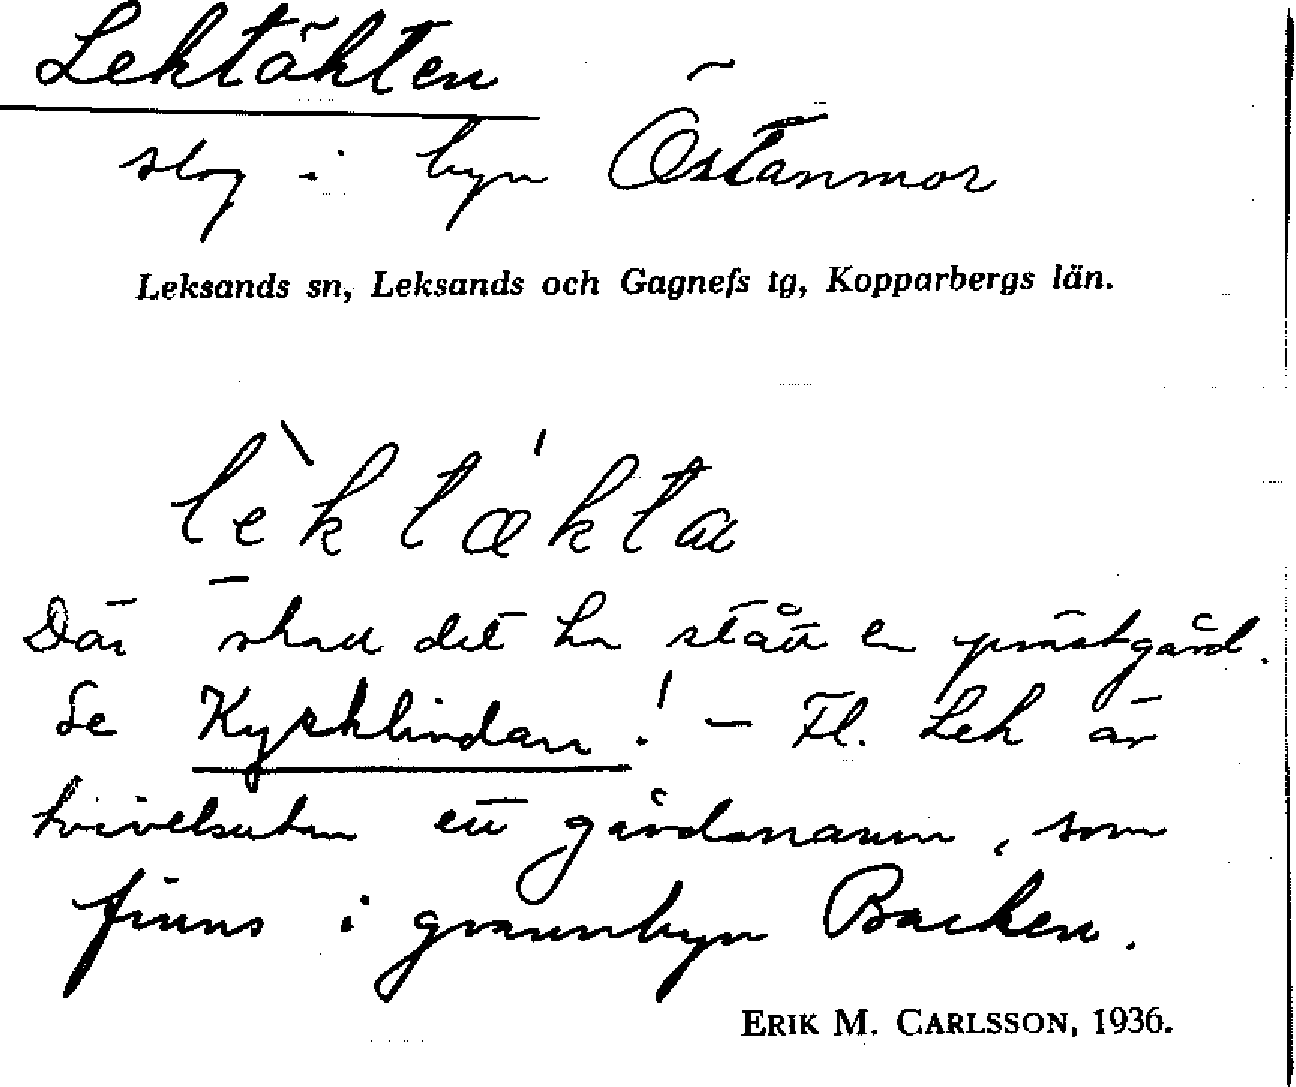 Lektäkten
slog i byn Östanmor
Leksands sn, Leksands och Gagnefs tg, Kopparbergs län.
lèktǽkta
Där skall det ha stått en prästgård.
Se Kyrklindan! – Fl. Lek är
tvivelsutan ett gårdsnamn, som
finns i grannbyn Backen.
ERIK M. CARLSSON, 1936.